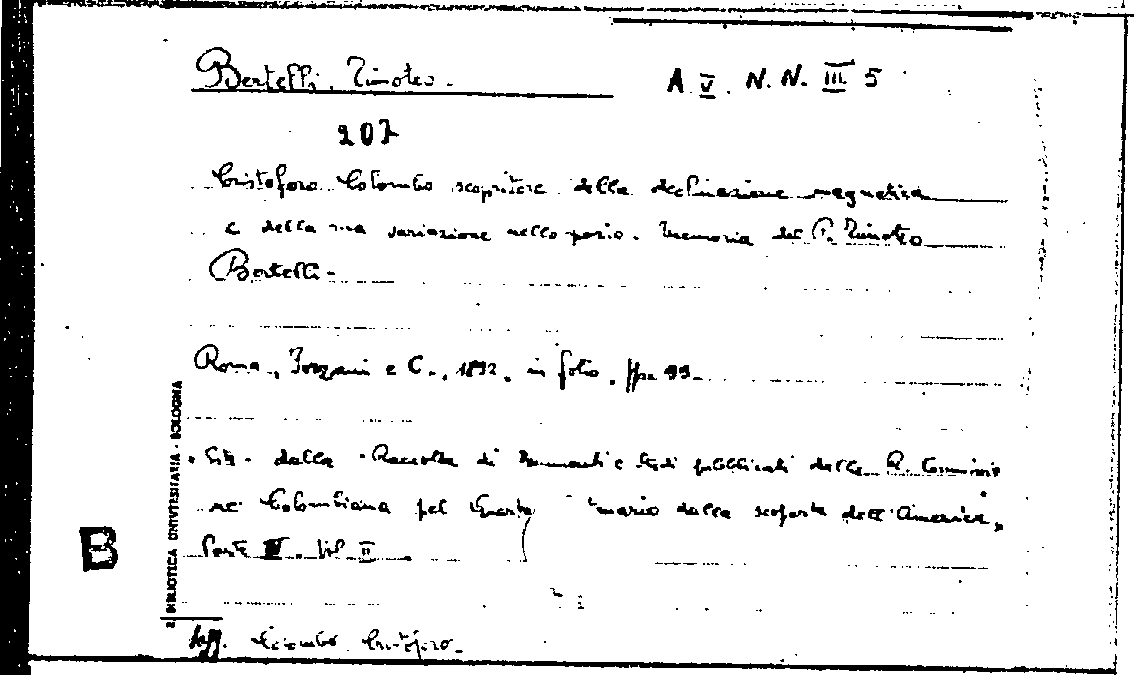 Bertelli. Timoteo. A V. N. N. III 5
207
Cristoforo Colombo scopritore della declinazione magnetica
e della sua variazione nello spazio. Memoria del P. Timoteo
Bertelli.
Roma, e C., 1892. in folio. pp. 99.
Estr. dalla Raccolta di Documenti e Studi pubblicati dalla R. Commissio
ne Colombiana pel Quarto dalla scoperta dell'America,
Parte IV. Vol II.
BIBLIOTECA UNIVERSITARIA - BOLOGNA
B
Sogg. Colombo Cristoforo.